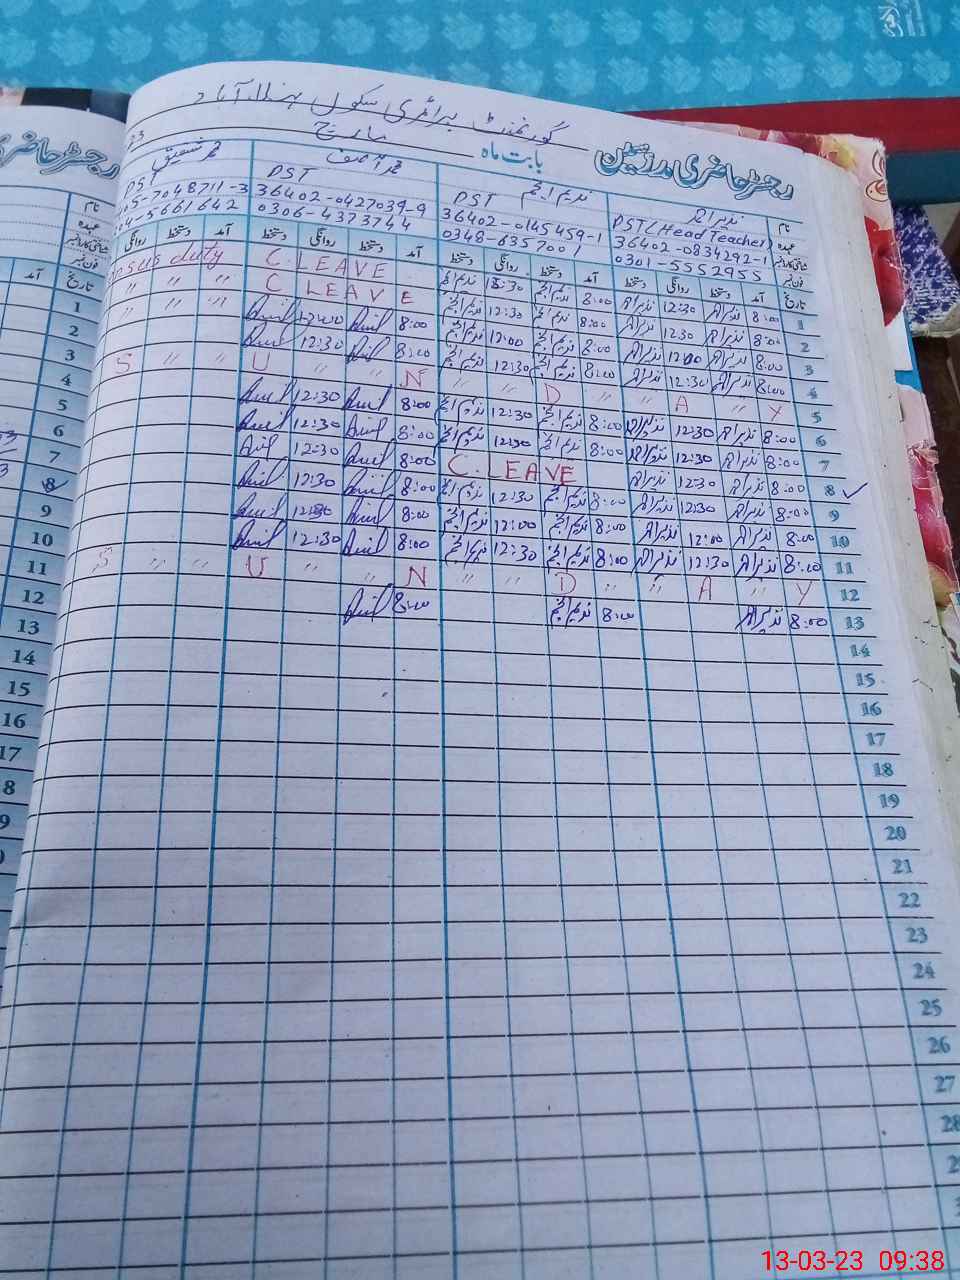 گورنمنٹ پرائمری سکول
رجسٹر حاضری مدرسین بابت ماہ مارچ 23
نام نذیر احمد ندیم انجم محمد آصف محمد شفیق
عہدہ PST(Head Teacher) PST PST PST
شناختی کارڈ نمبر 36402-0834292-1 36402-0145459-1 36402-0427039-9 7048711-3
فون نمبر 0301-5552955 0348-6357001 0306-4373744 5661642
تاریخ آمد دستخط روانگی دستخط آمد دستخط روانگی دستخط آمد دستخط روانگی دستخط آمد دستخط روانگی
1 8:00 نذیر احمد 12:30 نذیر احمد 8:00 ندیم انجم 12:30 ندیم انجم C. LEAVE duty
2 8:00 نذیر احمد 12:30 نذیر احمد 8:00 ندیم انجم 12:30 ندیم انجم C LEAVE " " "
3 8:00 نذیر احمد 12:00 نذیر احمد 8:00 ندیم انجم 12:00 ندیم انجم 8:00 12:00 " " "
4 8:00 نذیر احمد 12:30 نذیر احمد 8:00 ندیم انجم 12:30 ندیم انجم 8:00 12:30
5 S " " U " " N " " D " " A " Y
6 8:00 نذیر احمد 12:30 نذیر احمد 8:00 ندیم انجم 12:30 ندیم انجم 8:00 12:30
7 8:00 نذیر احمد 12:30 نذیر احمد 8:00 ندیم انجم 12:30 ندیم انجم 8:00 12:30
8 8:00 نذیر احمد 12:30 نذیر احمد C. LEAVE 8:00 12:30
9 8:00 نذیر احمد 12:30 نذیر احمد 8:00 ندیم انجم 12:30 ندیم انجم 8:00 12:30
10 8:00 نذیر احمد 12:00 نذیر احمد 8:00 ندیم انجم 12:00 ندیم انجم 8:00
11 8:00 نذیر احمد 12:30 نذیر احمد 8:00 ندیم انجم 12:30 ندیم انجم 8:00 12:30
12 S " " U " " N " " D " " A " Y
13 8:00 نذیر احمد 8:00 ندیم انجم 8:00
14
15
16
17
18
19
20
21
22
23
24
25
26
27
28
رجسٹر حاضری
نام
عہدہ
شناختی کارڈ نمبر
فون نمبر
تاریخ آمد
1
2
3
4
5
6
7
8
9
10
11
12
13
14
15
16
17
13-03-23 09:38